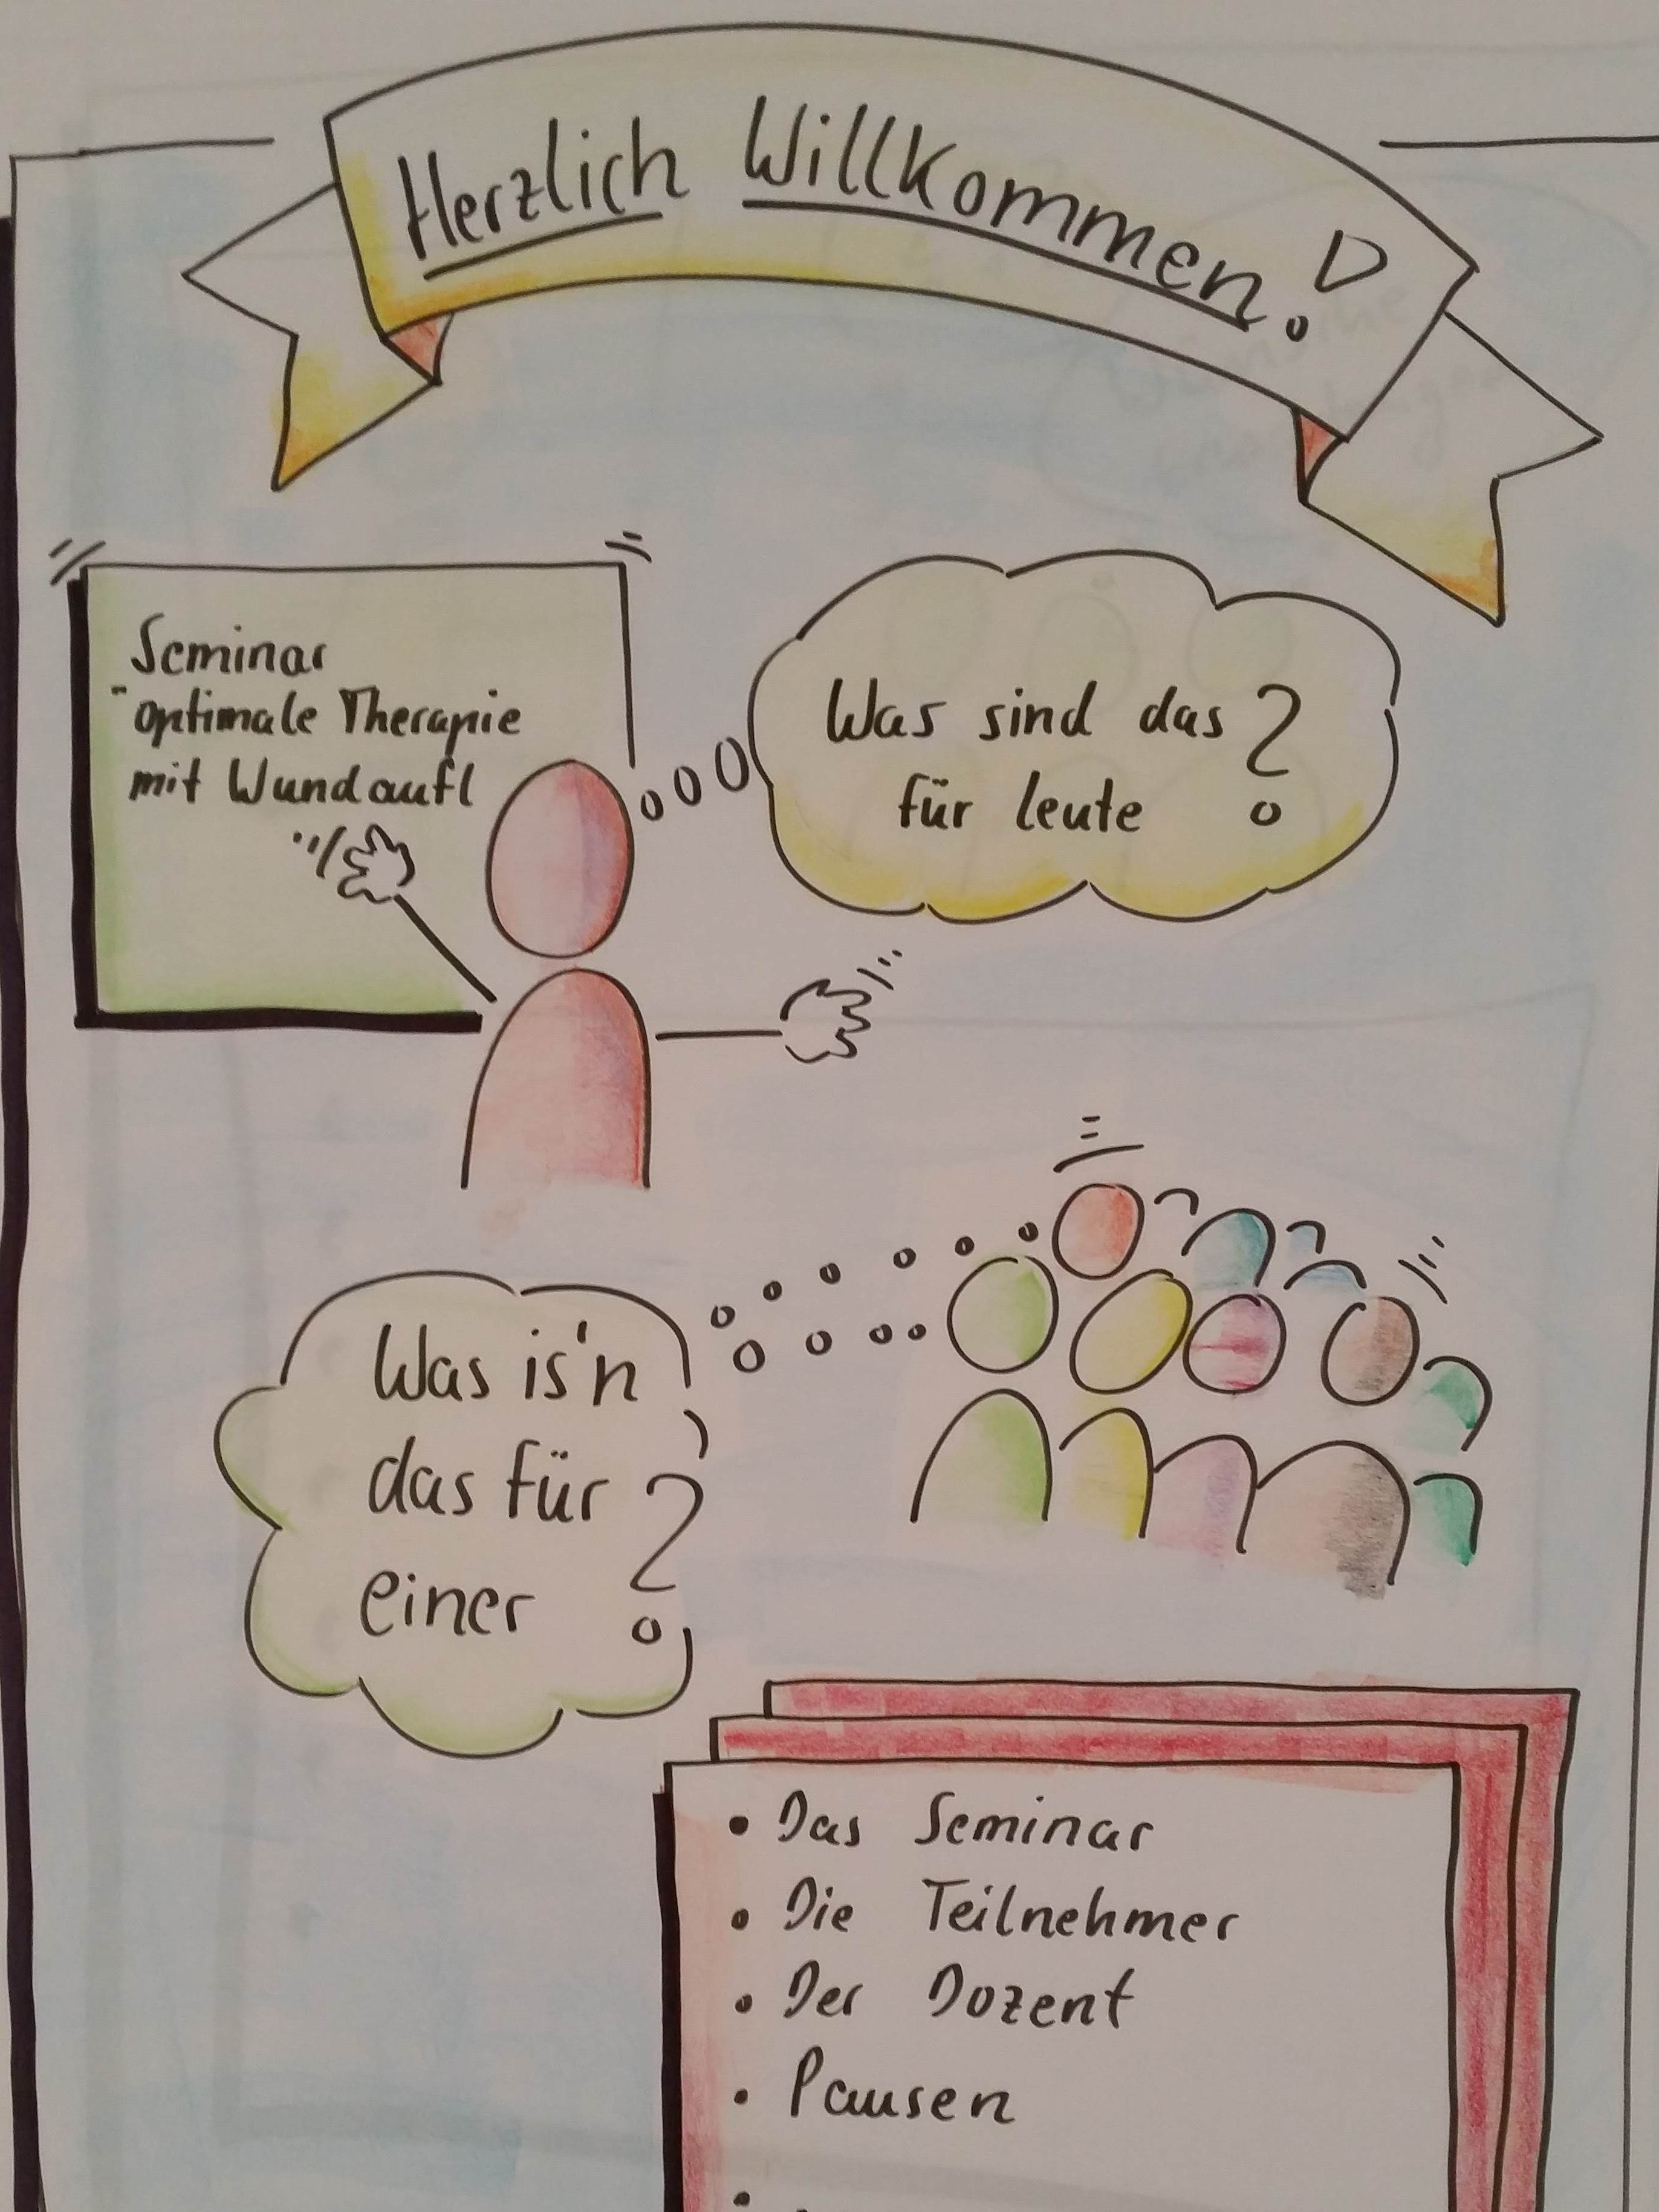 Herzlich Willkommen!
Seminar
"optimale Therapie
mit Wundaufl
Was sind das
für leute ?
Was is'n
das für
einer ?
• Das Seminar
• Die Teilnehmer
• Der Dozent
• Pausen